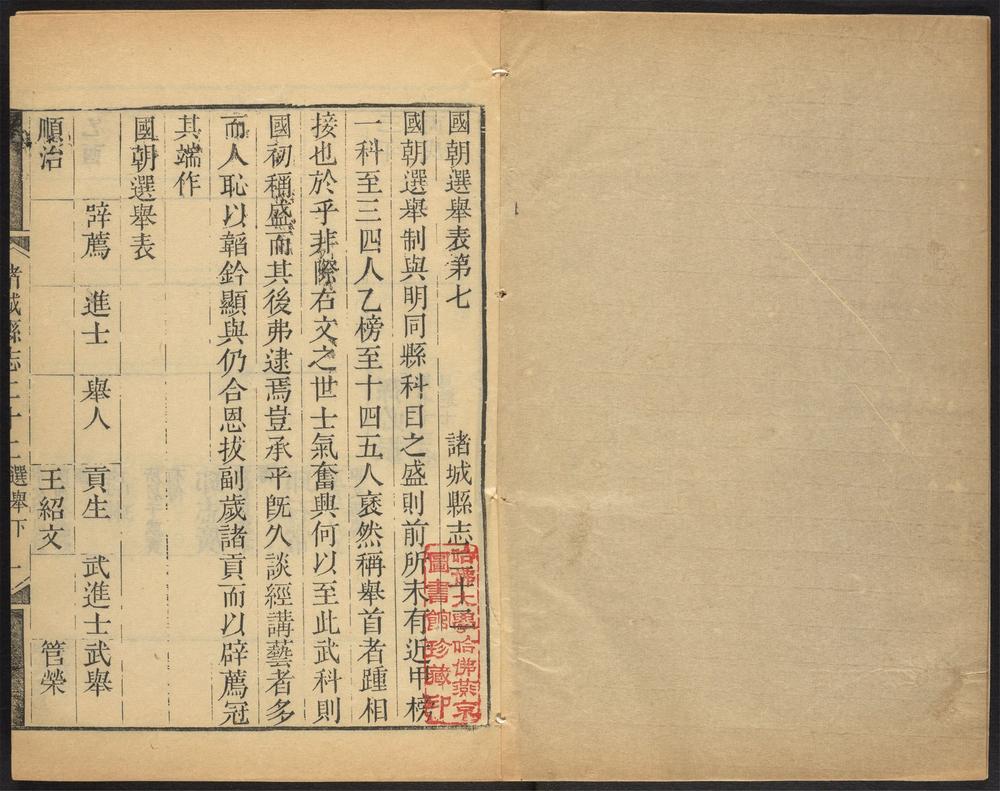 國朝選舉表第七 諸城縣志二十二
國朝選舉制與明同縣科目之盛則前所未有近甲榜
一科至三四人乙榜至十四五人裒然稱舉首者踵相
接也於乎非際右文之世士氣奮興何以至此武科則
國初稱盛而其後弗逮焉豈承平既久談經講藝者多
而人恥以韜鈐顯與仍合恩拔副歲諸貢而以辟薦冠
其端作
國朝選舉表
辟薦 進士 舉人 貢生 武進士 武舉
順治 王紹文 管榮
諸城縣志二十二 選舉下 一
哈佛大學哈佛燕京
圖書館珍藏印